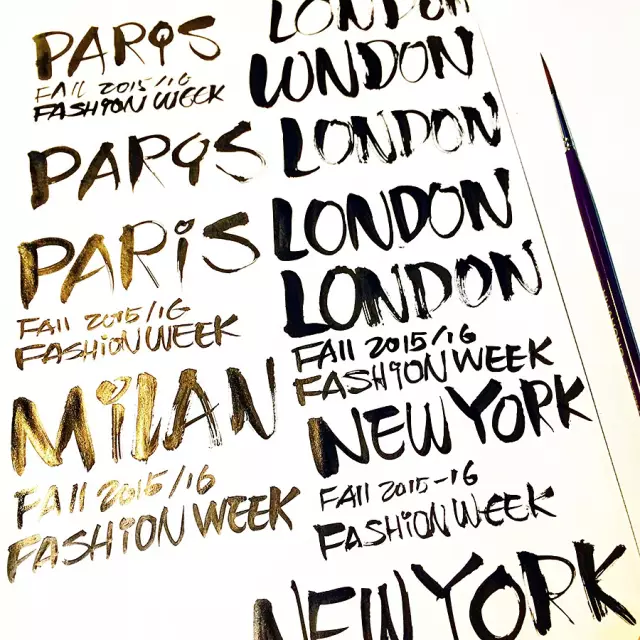 PARIS
FALL 2015/16
FASHION WEEK
PARIS
PARIS
FALL 2015/16
FASHION WEEK
MILAN
FALL 2015/16
FASHION WEEK
LONDON
LONDON
LONDON
LONDON
LONDON
FALL 2015/16
FASHION WEEK
NEW YORK
FALL 2015-16
FASHION WEEK
NEW YORK